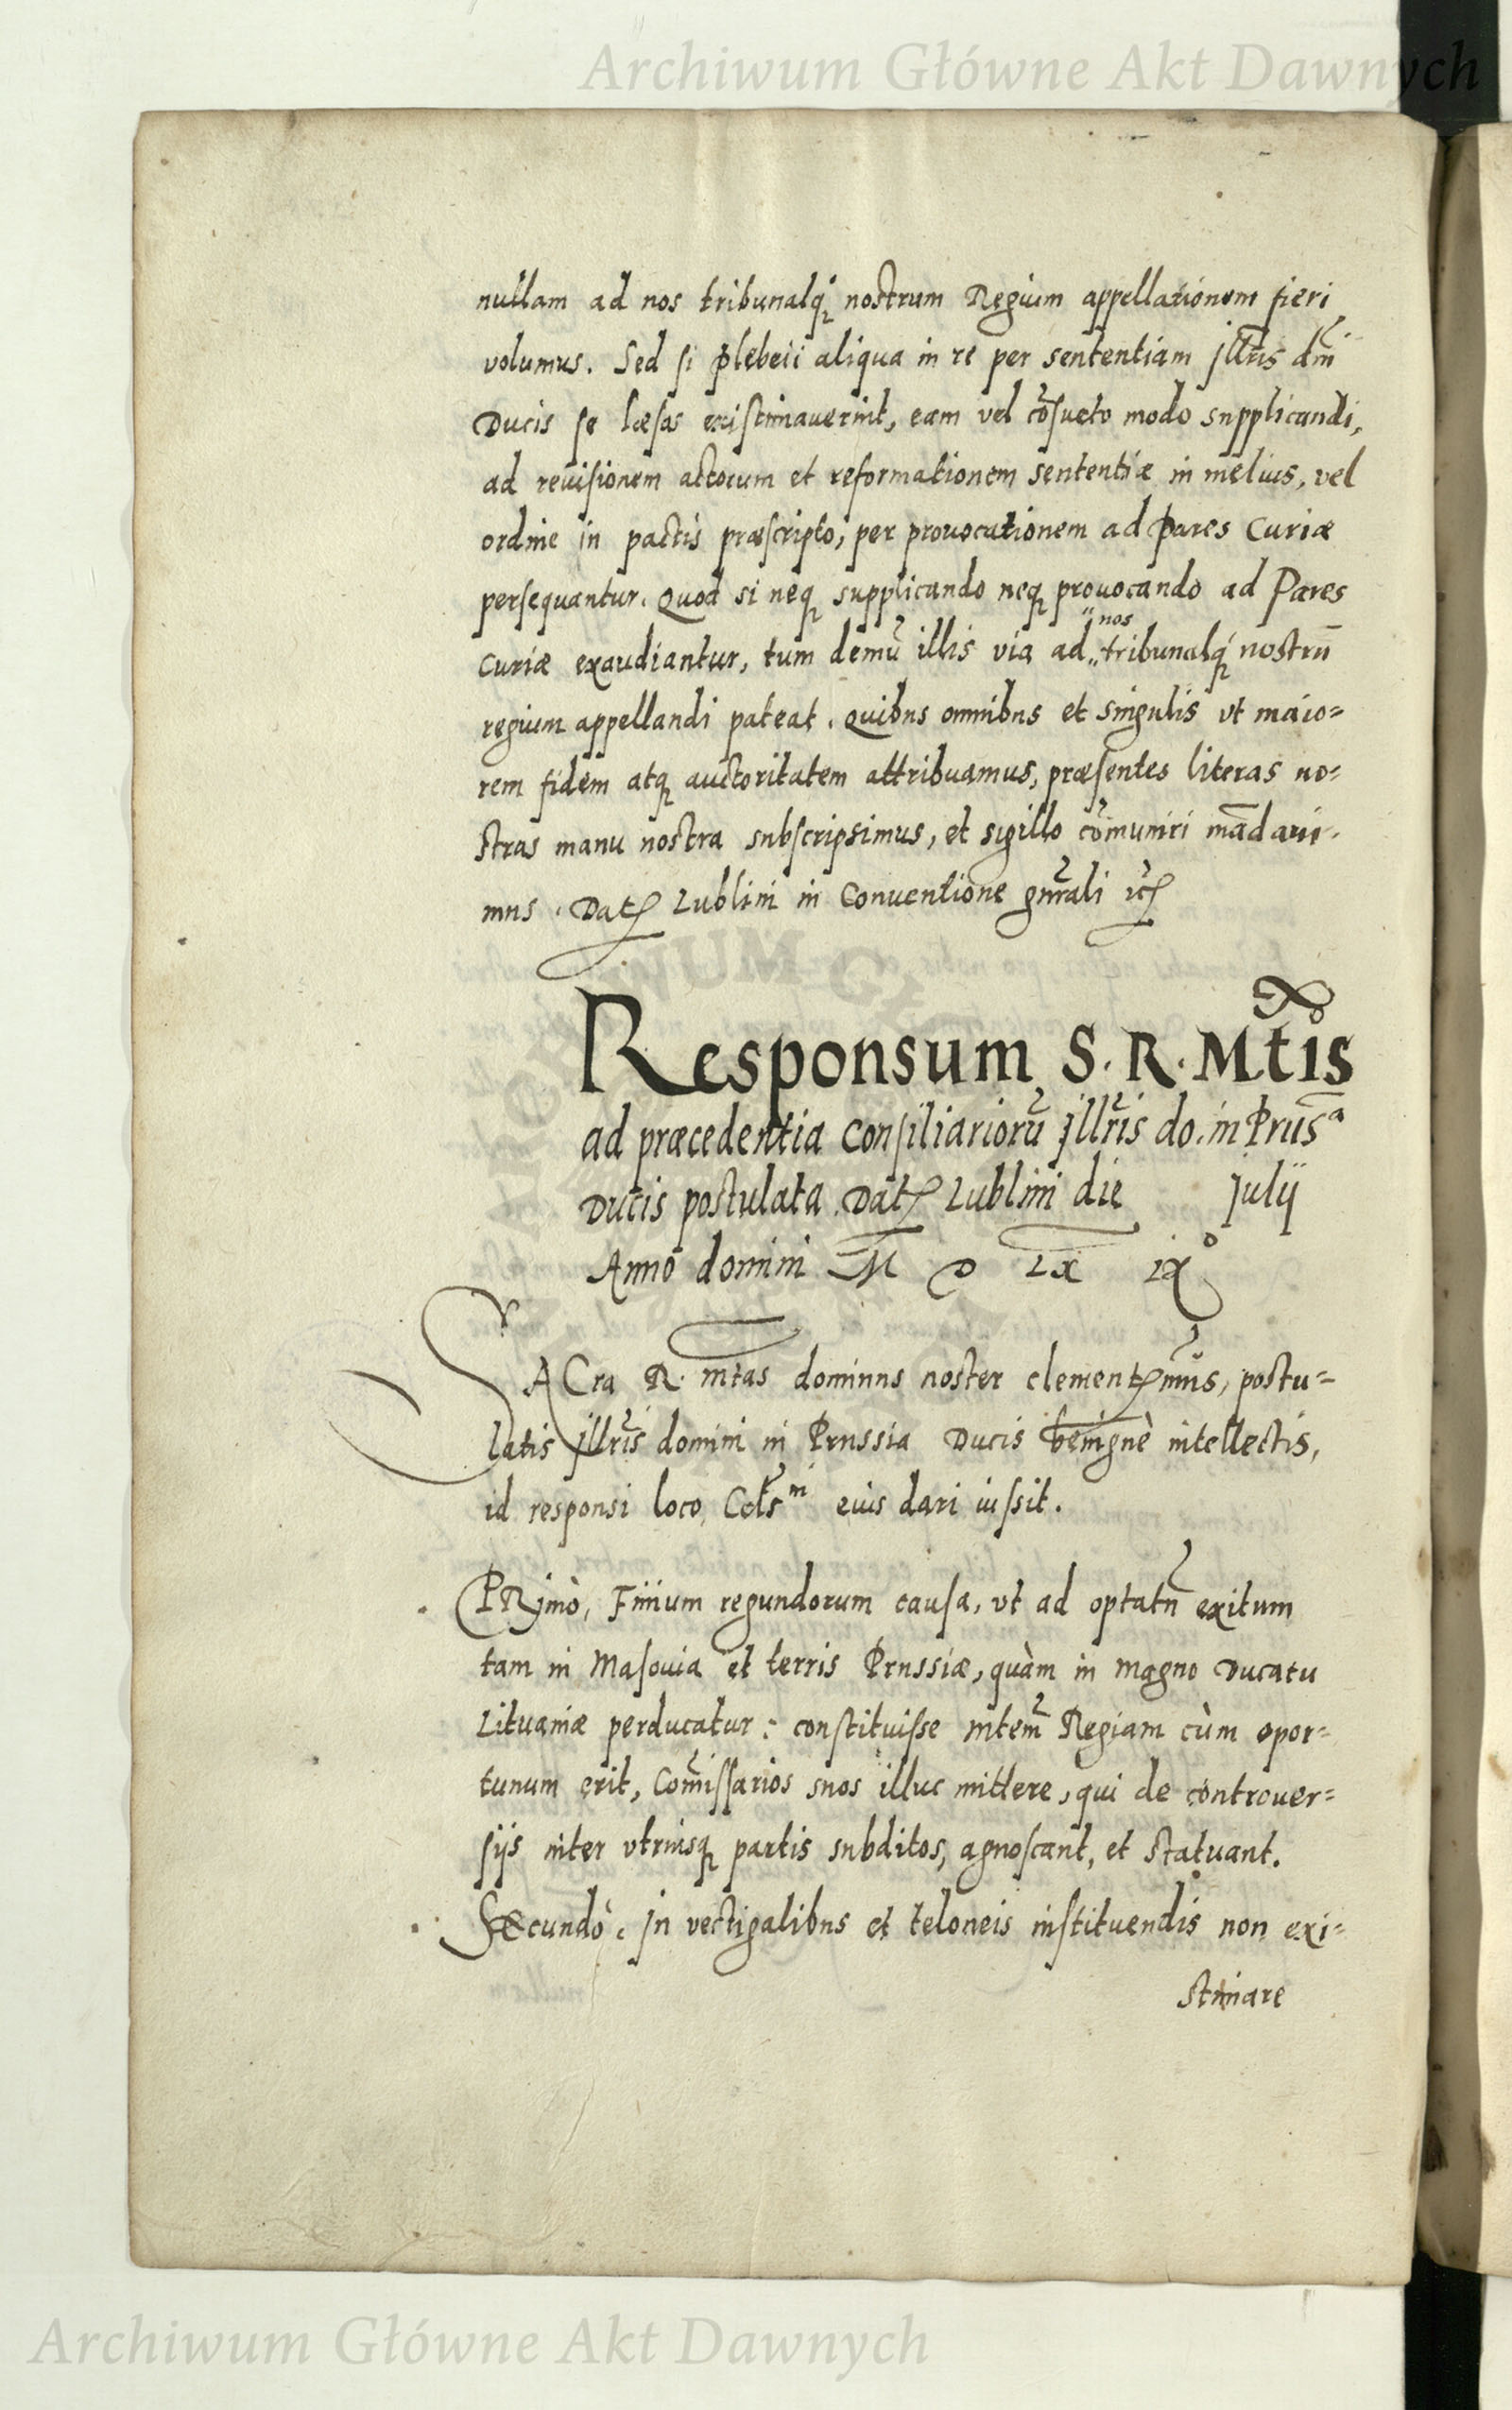 Archiwum Główne Akt Dawnych
nullam ad nos tribunalq; nostrum Regium appellationem fieri
volumus. Sed si plebeii aliqua in re per sententiam Jllris dni
Ducis se læsos existimauerint, eam vel cõsueto modo supplicandi,
ad reuisionem actorum et reformationem sententiæ in melius, vel
ordine in pactis præscripto, per prouocationem ad Pares Curiæ
persequantur. Quod si neq; supplicando neq; prouocando ad Pares
nos
Curiæ exaudiantur, tum demũ illis via ad „ tribunalq; nostrũ
regium appellandi pateat. Quibus omnibus et singulis vt maio=
rem fidem atq; auctoritatem attribuamus, præsentes literas no=
stras manu nostra subscripsimus, et sigillo cõmuniri mãdaui-
mus. Dat; Lublini in Conuentione gnrali etc;
Responsum S. R. Mtis
ad præcedentia Consiliariorũ Jllris do. in Prusa
Ducis postulata. Dat; Lublini die Julij
Anno domini M D LX IXo
SACra R. mtas dominus noster clementissimus, postu=
latis Jllris domini in Prussia Ducis benignè intellectis,
id responsi loco, eius dari iussit.
PRimò, Finium regundorum causa, vt ad optatũ exitum
tam in Masouia et terris Prussiæ, quàm in magno Ducatu
Lituaniæ perducatur: constituisse mtem Regiam cùm opor=
tunum erit, Comissarios suos illuc mittere, qui de controuer=
sijs inter vtriusq; partis subditos, agnoscant, et statuant.
SEcundò. Jn vectigalibus et teloneis instituendis non exi=
stimare
Archiwum Główne Akt Dawnych